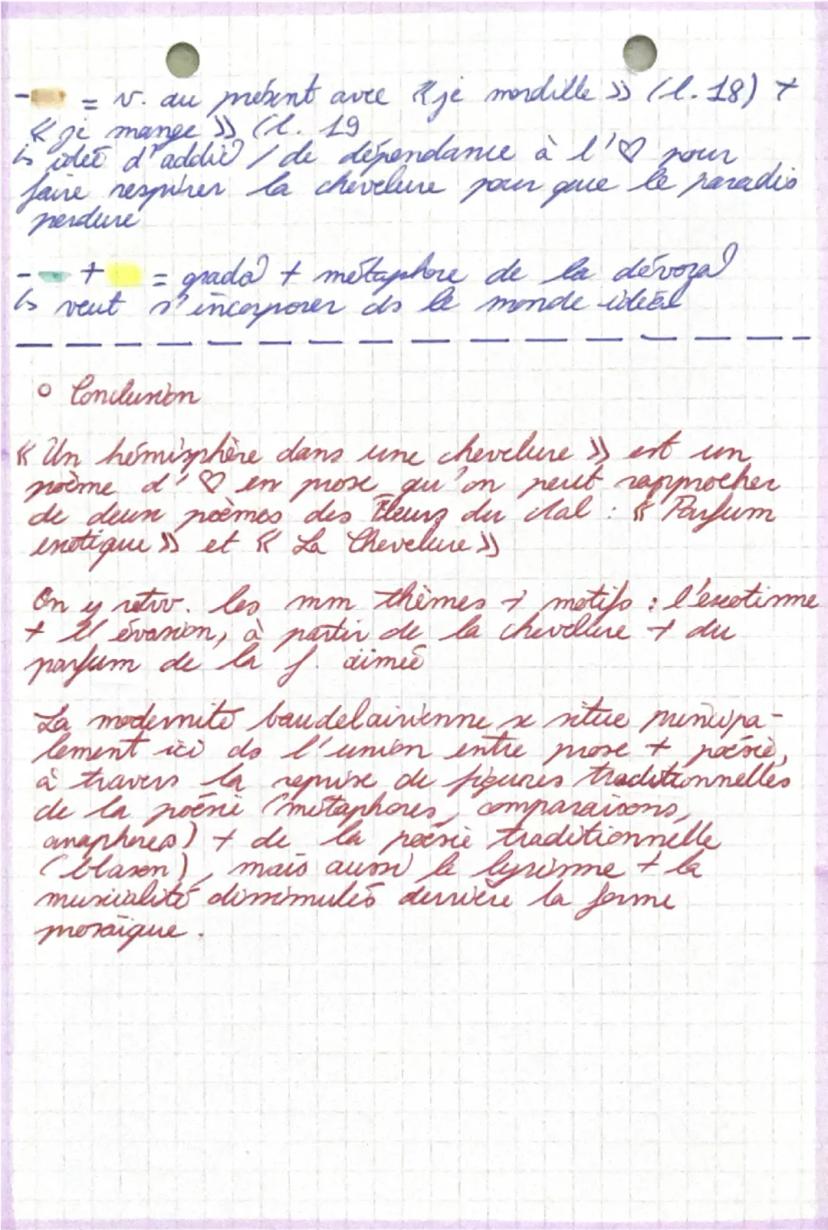 - = v. au présent avec « je mordille » (l. 18) +
« je mange » (l. 19
↳ idée d'addic° / de dépendance à l'♡ pour
faire respirer la chevelure pour que le paradis
perdure
- + = grada° + métaphore de la dévora°
↳ veut s'incorporer ds le monde idéal
○ Conclusion
« Un hémisphère dans une chevelure » est un
poème d'♡ en prose qu'on peut rapprocher
de deux poèmes des Fleurs du Mal : « Parfum
exotique » et « La Chevelure »
On y retrv. les mm thèmes + motifs : l'exotisme
+ l'évasion, à partir de la chevelure + du
parfum de la f. aimée
La modernité baudelairienne se situe principa-
lement ici ds l'union entre prose + poésie,
à travers la reprise de figures traditionnelles
de la poésie (métaphores, comparaisons,
anaphores) + de la poésie traditionnelle
(blason), mais aussi le lyrisme + la
musicalité dissimulés derrière la forme
prosaïque.